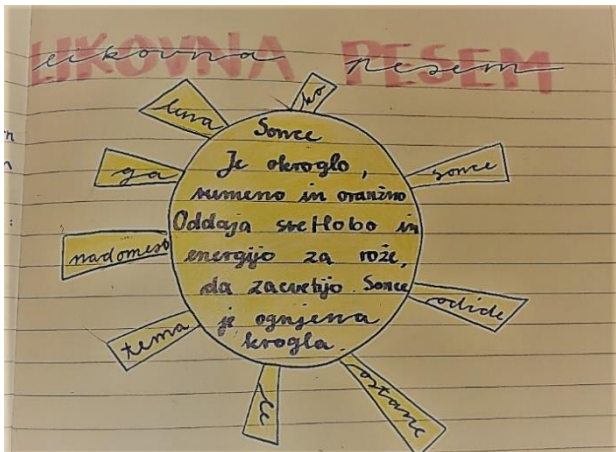 LIKOVNA PESEM
likovna pesem
Sonce
Je okroglo,
rumeno in oranžno
Oddaja svetlobo in
energijo za rože,
da zacvetijo. Sonce
je ognjena
krogla.
ko
sonce
odide
ostane
le
tema
nadomesti
ga
luna